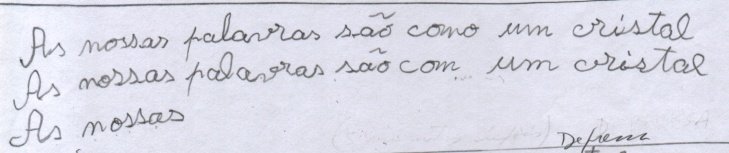 As nossas palavras são como um cristal
As nossas palavras são com um cristal
As nossas